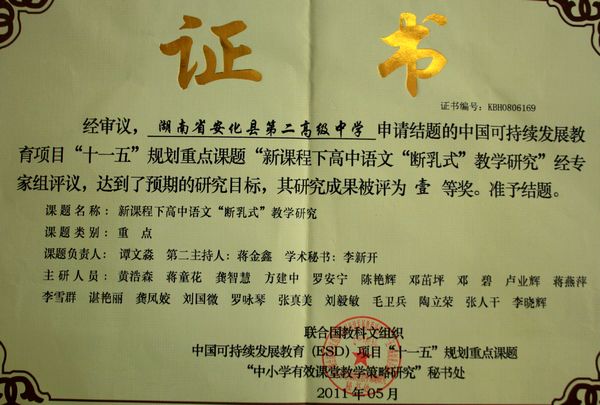 证 书
证书编号：KBH0806169
经审议，湖南省安化县第二高级中学 申请结题的中国可持续发展教
育项目“十一五”规划重点课题“新课程下高中语文“断乳式”教学研究”经专
家组评议，达到了预期的研究目标，其研究成果被评为 壹 等奖。准予结题。
课题名称：新课程下高中语文“断乳式”教学研究
课题类别：重 点
课题负责人：谭文淼 第二主持人：蒋金鑫 学术秘书：李新开
主研人员：黄浩森 蒋童花 龚智慧 方建中 罗安宁 陈艳辉 邓茁坪 邓 碧 卢业辉 蒋燕萍
李雪群 谌艳丽 龚凤姣 刘国微 罗咏琴 张真美 刘毅敏 毛卫兵 陶立荣 张人干 李晓辉
联合国教科文组织
中国可持续发展教育（ESD）项目“十一五”规划重点课题
“中小学有效课堂教学策略研究”秘书处
2011年05月